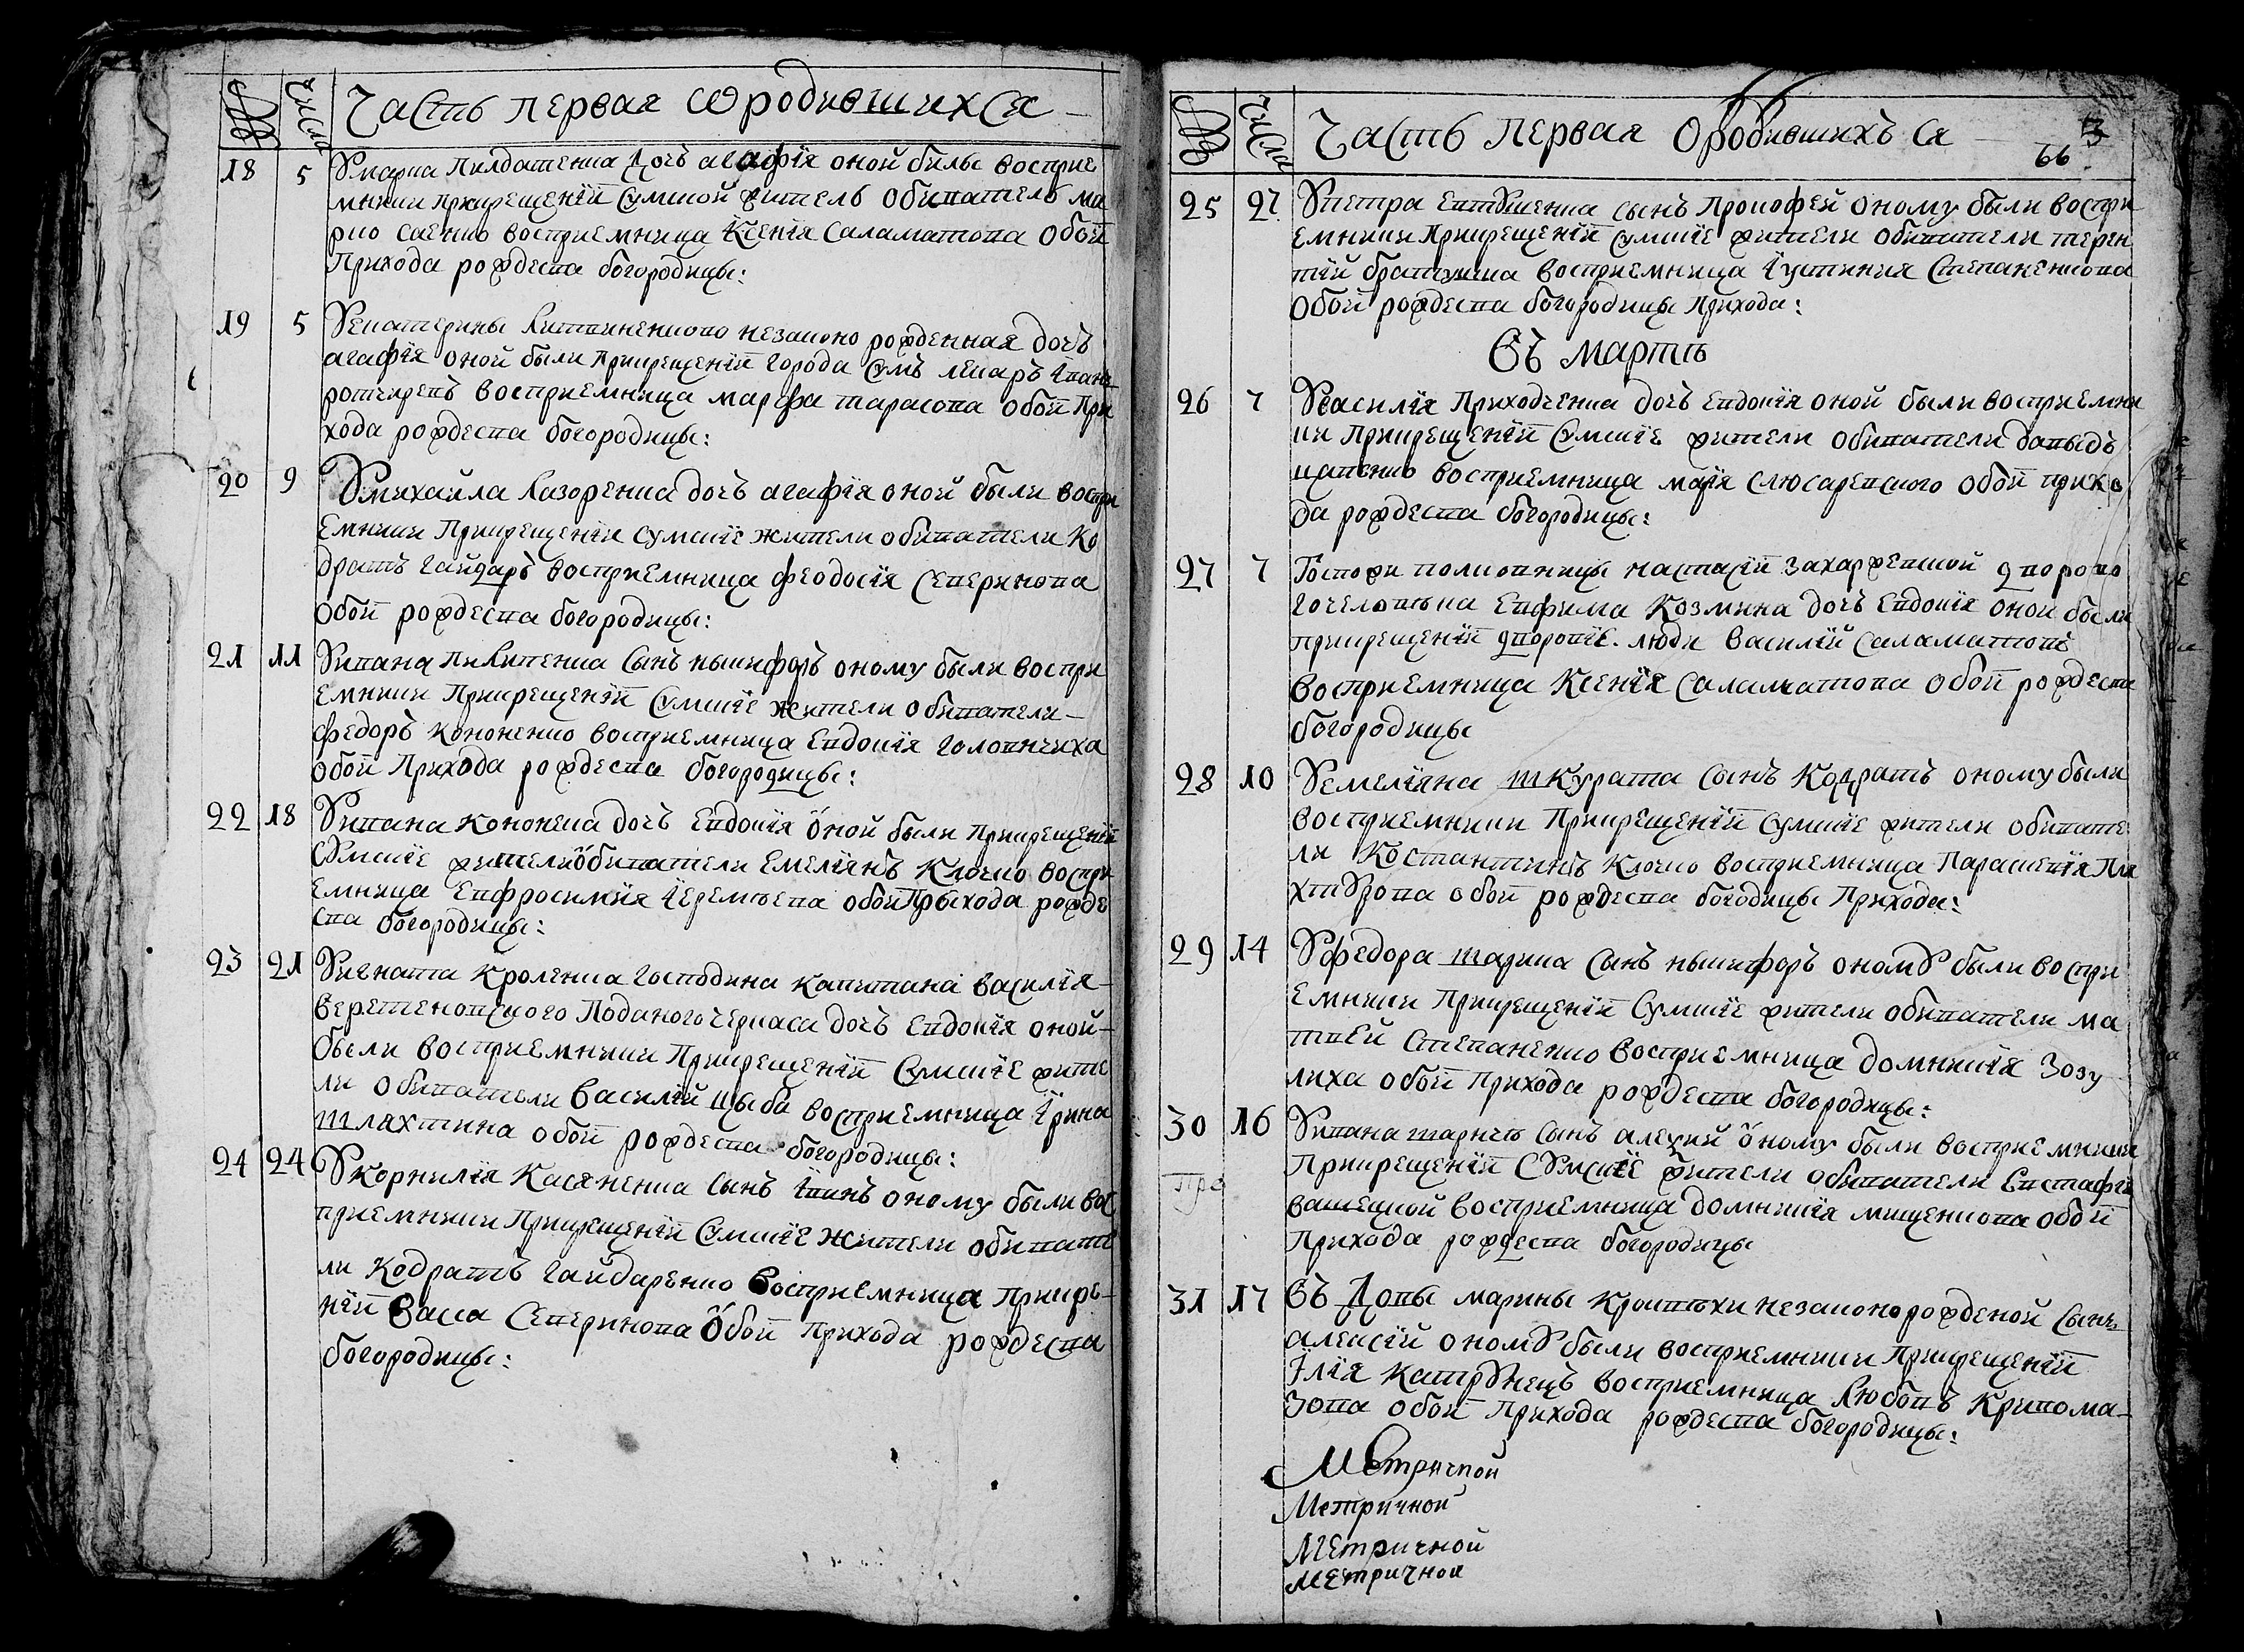 № числа Часть первая ѡ родившихся
18 5 Умарка Пилдатенка дочъ агафія оной былы восприе
мники прикрещеніи Сумской житель обиватель ма
рко саенко восприемница Ксенія Саламатова обои
Прихода рождества богородицы:
19 5 Уекатерины Литвиненково незаконо рожденная дочъ
агафія оной были Прикрещеніи города Сумъ лекаръ Іванъ
восприемница марфа тарасова обои При
хода рождества богородицы:
20 9 Умихаила Лазоренка дочъ агафія оной были воспри
емники Прикрещеніи сумскіе жители обиватели Ко
дратъ гайдаръ восприемница феодосія Северинова
обои рождества богородицы:
21 11 Уивана Пилипенка Сынъ ныкифоръ оному были воспри
емники Прикрещеніи Сумскіе жители обиватели
федоръ Кононенко восприемница Евдокія головчиха
обои Прихода рождества богородицы:
22 18 Уивана Кононека дочъ Евдокія оной были Прикрещеніи
Сумскіе жители обиватели Емеліянъ Клочко воспри
емница Евфросимія Іеремѣева обои Прыхода рожде
ства богородицы:
23 21 Уигната Кроленка господина капитана василія
веретеновского Подданого черкаса дочъ Евдокія оной
были восприемники Прикрещеніи Сумскіе жите
ли обиватели василій цыба восприемница Ірина
шляхтина обои рождества богородицы:
24 24 Укорнилія Касяненка Сынъ Іванъ оному были вос
приемники Прикрещеніи Сумскіе жители обивате
ли Кодратъ гайдаренко восприемница Прикре
неи Васса Северинова Обои Прихода рождества
богородицы:
№ числа Часть Первая О родившихъ ся 3
66
25 27 Упетра Евтушенка сынъ Прокофей оному были воспри
емники Прикрещеніи сумскіе жители обиватели терен
тій братушка восприемница Іустиния Степаненкова
обои рождества богородицы Прихода:
Въ мартѣ
26 7 Увасилія Приходченка дочъ евдокія оной были восприемни
ки прикрещеніи Сумскіе жители обиватели давыдъ
цапенко восприемница марія слюсаревского обои прихо
да рождества богородицы:
27 7 Госпожи полковницы настасіи захаржевской дворово
го человѣка Евфима Козмина дочъ Евдокія оной были
прикрещеніи дворовіе люди Василій саламатовъ
восприемница Ксенія Саламатова обои рождества
богородицы
28 10 Уемеліяна шкурата Сынъ Кодратъ оному были
восприемники Прикрещеніи Сумскіе жители обивате
ли Костантинъ Клочко восприемница Параскевія Пла
хтѣрова обои рождества богодицы Прихода:
29 14 Уфедора Сынъ ныкифоръ оному были воспри
емники Прикрещеніи Сумскіе жители обиватели ма
твей Степаненко восприемница домникія Зозу
лиха обои прихода рождества богородицы:
30 16 Уивана Сынъ алеѯий оному были восприемники
Прикрещеніи Сумскіе жители обиватели Евстафій
вашецкой восприемница домникія мищенкова обои
Прихода рождества богородицы
31 17 Въ Довы марины незаконорожденой сынъ
алексій оному были восприемники Прикрещеніи
Ілія Катрунецъ восприемница Любовъ Кривома
зова обои Прихода рождества богородицы:
Метричной
Метричной
Метричной
Метричной